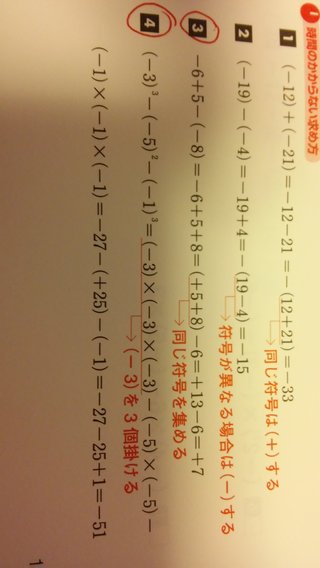 ! 時間のかからない求め方
1 (−12)+(−21)=−12−21=−(12+21)=−33
同じ符号は(+)する
2 (−19)−(−4)=−19+4=−(19−4)=−15
符号が異なる場合は(−)する
3 −6+5−(−8)=−6+5+8=(+5+8)−6=+13−6=+7
同じ符号を集める
4 (−3)³−(−5)²−(−1)³=(−3)×(−3)×(−3)−(−5)×(−5)−
(−3)を3個掛ける
(−1)×(−1)×(−1)=−27−(+25)−(−1)=−27−25+1=−51